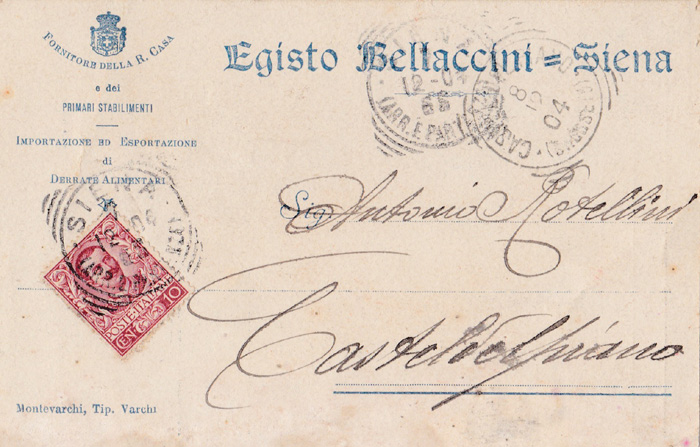 FORNITORE DELLA R. CASA
e dei
PRIMARI STABILIMENTI
IMPORTAZIONE ED ESPORTAZIONE
di
DERRATE ALIMENTARI
Egisto Bellaccini = Siena
SIENA
12-04
(ARR.E PART.)
04
SIENA
POSTE ITALIANE
CEN. 10
Sig. Antonio Rotellini
Castel del Piano
Montevarchi, Tip. Varchi